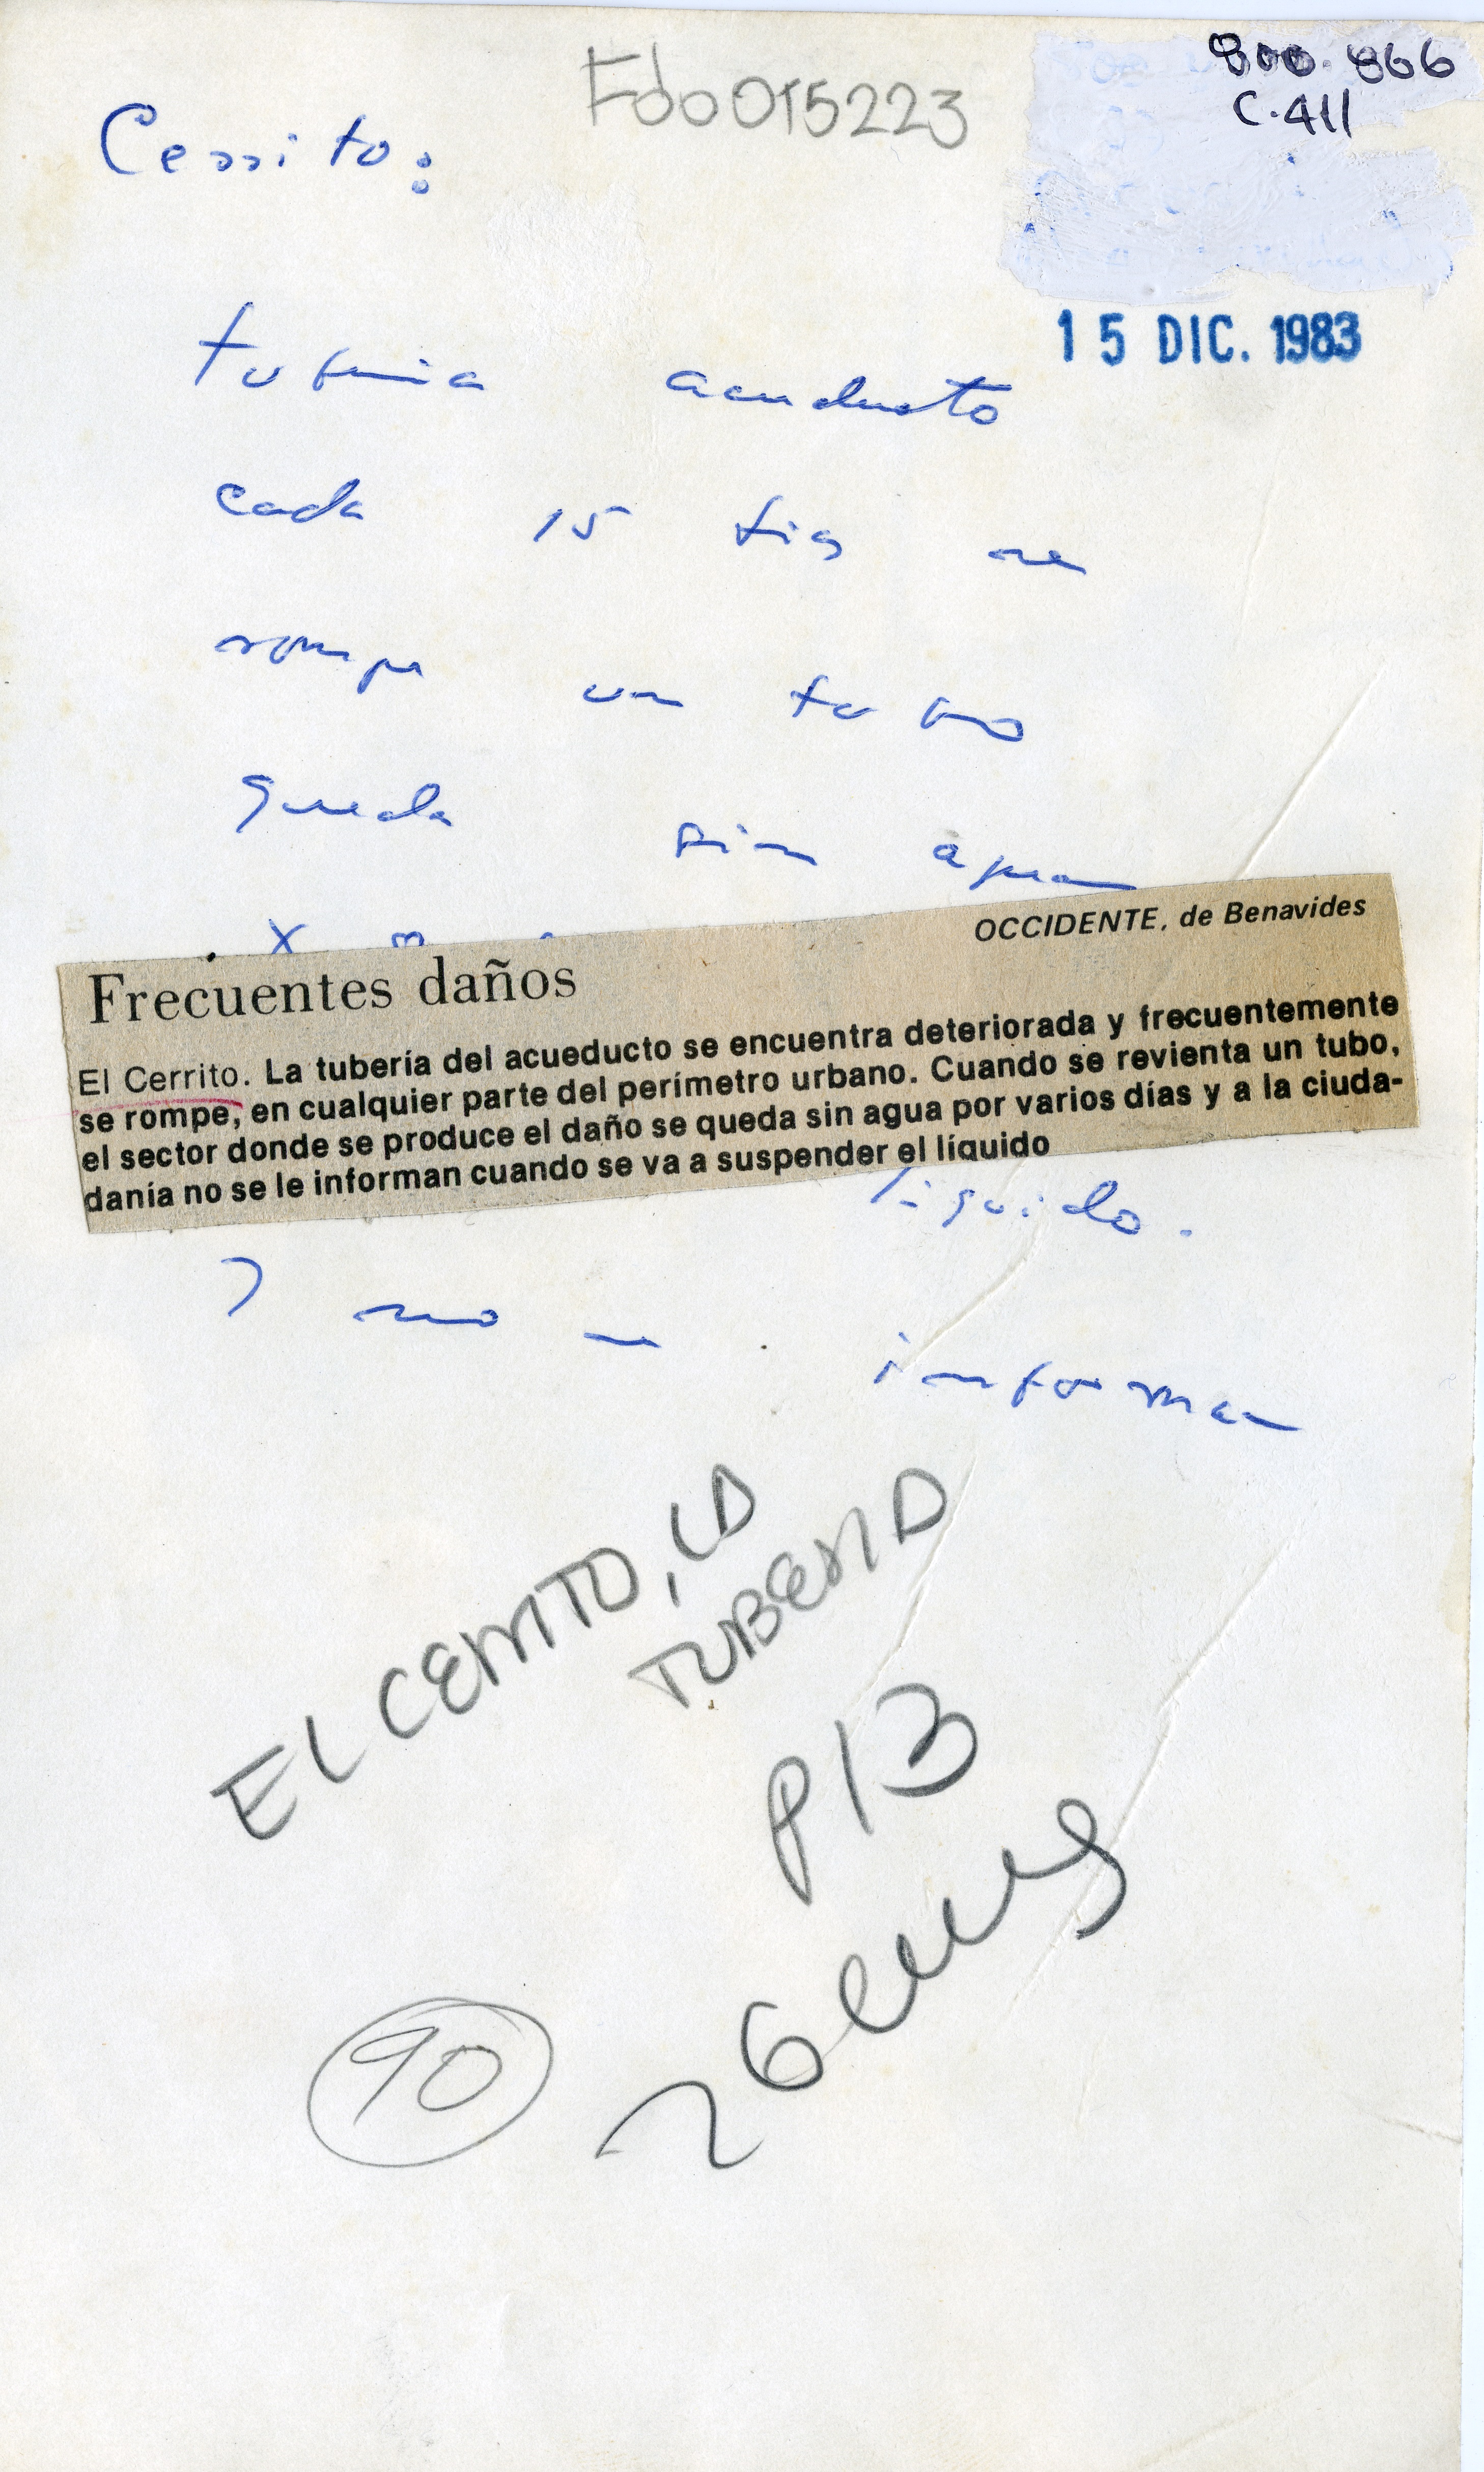 Fdo015223
800.866
C.411
Cerrito:
15 DIC. 1983
tuberia acueducto
cada 15 dias se
rompe un tubo
queda sin agua
x
OCCIDENTE, de Benavides
Frecuentes daños
El Cerrito. La tubería del acueducto se encuentra deteriorada y frecuentemente
se rompe, en cualquier parte del perímetro urbano. Cuando se revienta un tubo,
el sector donde se produce el daño se queda sin agua por varios días y a la ciuda-
danía no se le informan cuando se va a suspender el líquido
liquido.
y no informan
EL CERRITO, LA
TUBERIA
P13
26 cms
90